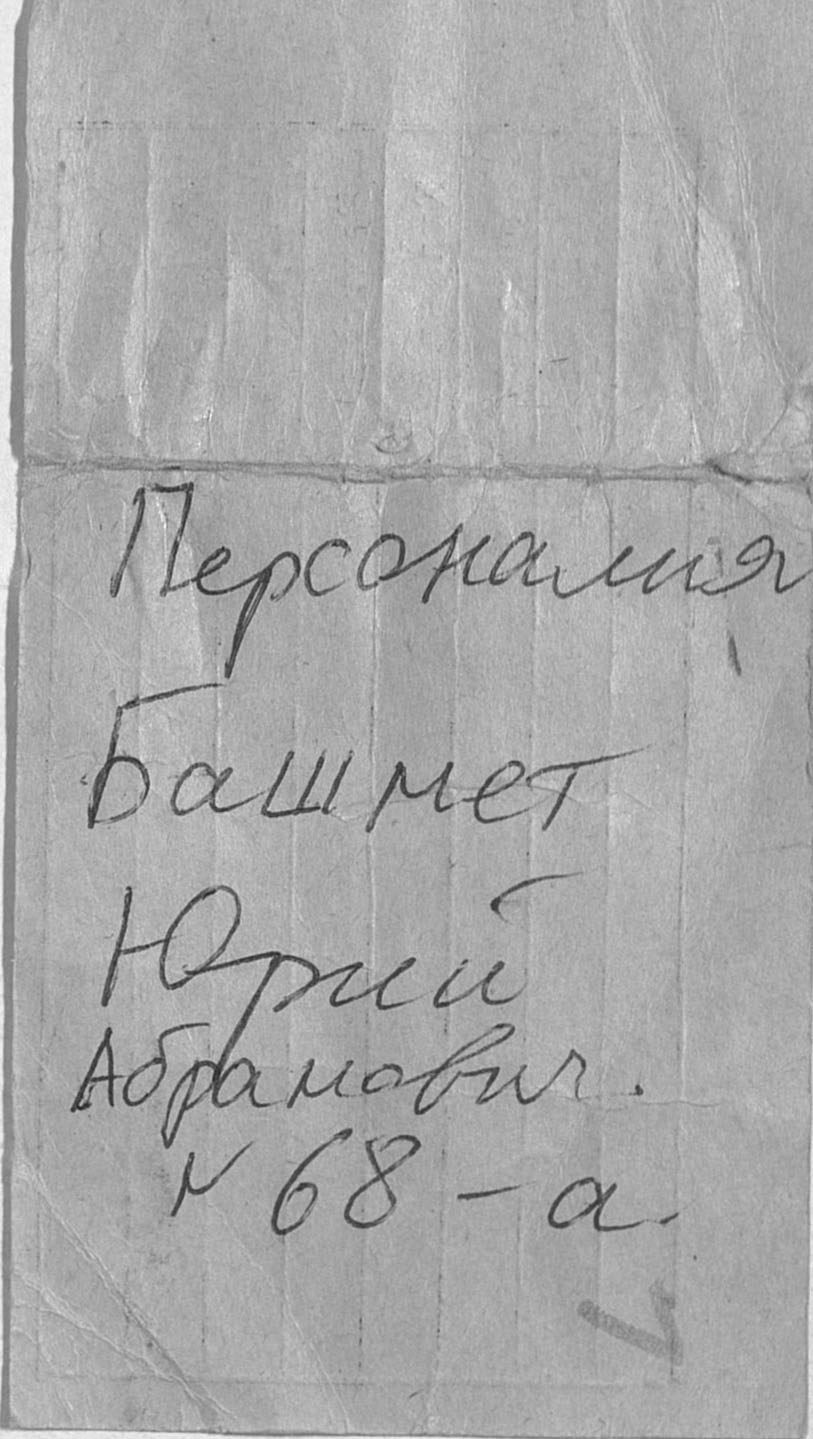 Персоналия
Башмет
Юрий
Абрамович.
N 68-а.